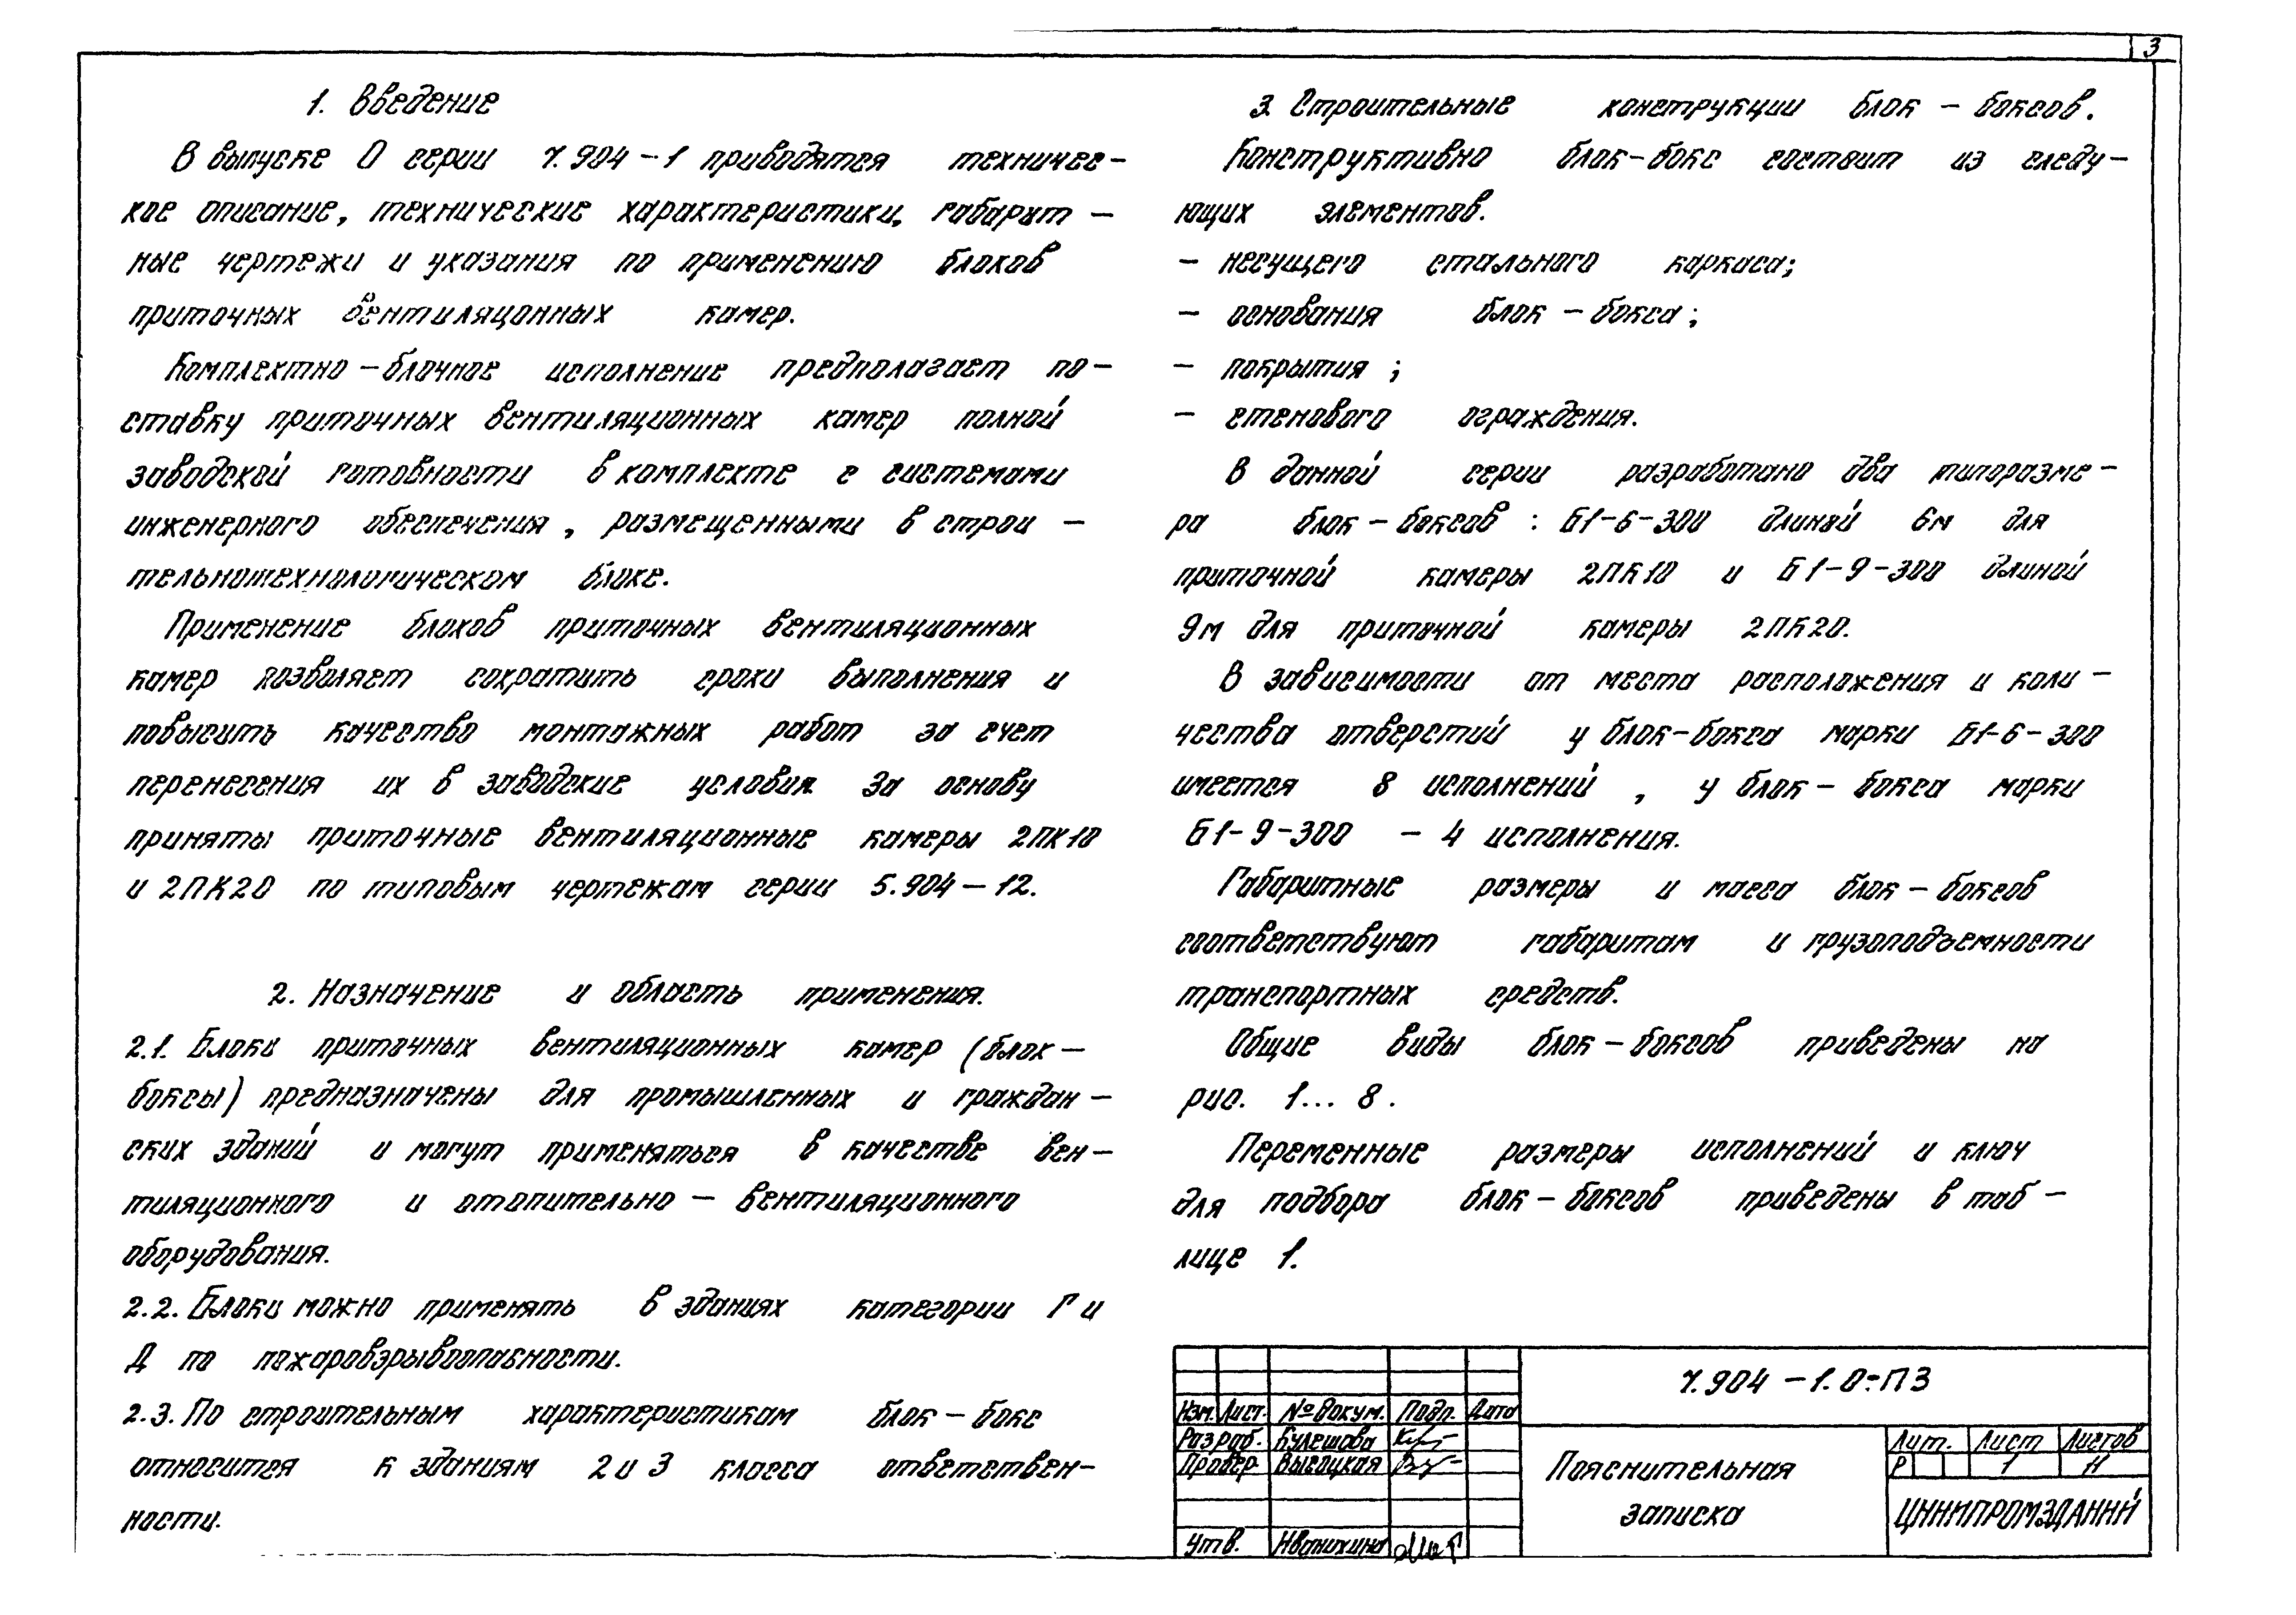 3
1. Введение
В выпуске 0 серии 7.904-1 приводятся техничес-
кое описание, технические характеристики, габарит-
ные чертежи и указания по применению блоков
приточных вентиляционных камер.
Комплектно-блочное исполнение предполагает по-
ставку приточных вентиляционных камер полной
заводской готовности в комплекте с системами
инженерного обеспечения, размещенными в строи-
тельнотехнологическом блоке.
Применение блоков приточных вентиляционных
камер позволяет сократить сроки выполнения и
повысить качество монтажных работ за счет
перенесения их в заводские условия. За основу
приняты приточные вентиляционные камеры 2ПК10
и 2ПК20 по типовым чертежам серии 5.904-12.
2. Назначение и область применения.
2.1. Блоки приточных вентиляционных камер (блок-
боксы) предназначены для промышленных и граждан-
ских зданий и могут применяться в качестве вен-
тиляционного и отопительно-вентиляционного
оборудования.
2.2. Блоки можно применять в зданиях категории Г и
Д по пожаровзрывоопасности.
2.3. По строительным характеристикам блок-бокс
относится к зданиям 2 и 3 класса ответствен-
ности.
3. Строительные конструкции блок-боксов.
Конструктивно блок-бокс состоит из следу-
ющих элементов.
- несущего стального каркаса;
- основания блок-бокса;
- покрытия;
- стенового ограждения.
В данной серии разработано два типоразме-
ра блок-боксов: Б1-6-300 длиной 6м для
приточной камеры 2ПК10 и Б1-9-300 длиной
9м для приточной камеры 2ПК20.
В зависимости от места расположения и коли-
чества отверстий у блок-бокса марки Б1-6-300
имеется 8 исполнений, у блок-бокса марки
Б1-9-300 - 4 исполнения.
Габаритные размеры и масса блок-боксов
соответствуют габаритам и грузоподъемности
транспортных средств.
Общие виды блок-боксов приведены на
рис. 1... 8.
Переменные размеры исполнений и ключ
для подбора блок-боксов приведены в таб-
лице 1.
7.904-1.0-ПЗ
Изм. Лист. № докум. Подп. Дата
Разраб. Кулешова
Провер Высоцкая
Утв.
Пояснительная
записка
Лит. Лист Листов
Р 1 11
ЦНИИПРОМЗДАНИЙ